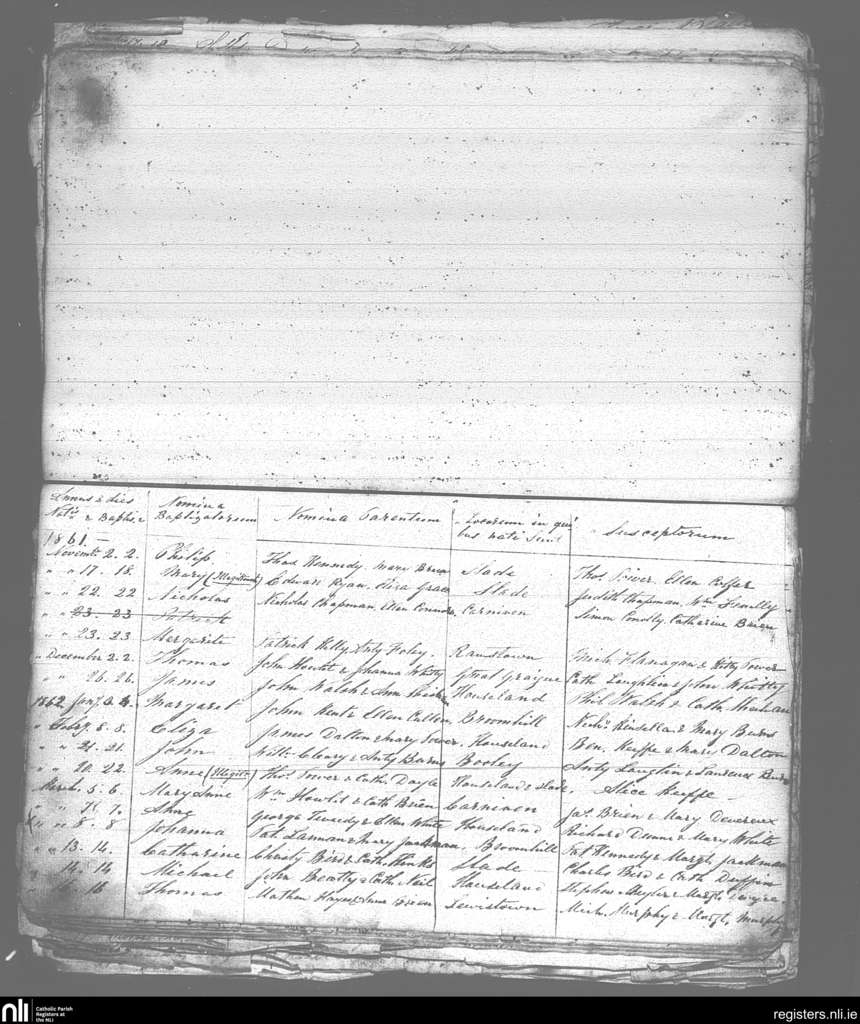 Annus & dies Nomina Nomina Parentum Locorum in qui Susceptorum
Nat.s & Baptis.s Baptizatorum bus nati sunt
1861.—
Novemb. 2. 2. Philip Thos Kennedy, Mary Brien Slade Thos Power, Ellen
" " 17. 18. Mary (Illegitimate) Edward Ryan, Eliza Grace Slade Judith Chapman, Wm Fenelly
" " 22. 22 Nicholas Nicholas Chapman, Ellen Connors, Carnivan Simon Conolly, Catharine
" " 23. 23 Patrick
" " 23. 23 Margerite Patrick Kelly, Anty Foley. Ramstown Mich Flanagan & Kitty Power
" December 2. 2. Thomas John Howlet & Johanna Whitty Great Graigue Cath Laughlin & John Whitty
" " 26. 26. James John Walsh & Ann Houseland Phil Walsh & Cath
1862 Jany Margaret John Kent & Ellen Cullen, Broomhill Nichs Kinsella & Mary Burns
" Feby. 8. 8. Eliza James Dalton & Mary Power, Houseland Ben. Keeffe & Mary Dalton
" " 21. 21. John Willm Cleary & Anty Barns Booley Anty Laughlin & Laurence
" " 20. 22. Anne (Illegit.) Thos Power & Cath. Doyle Houseland & Slade, Alice Keeffe —
March. 5. 6. Mary Anne Wm Howlet & Cath Brien Carnivan Jas. Brien & Mary Devereux
" " 7. 7. Anne George Tweedy & Ellen White Houseland Richard & Mary White
" " 8. 8 Johanna Pat. Lannan & Mary Jackman, Broomhill Pat Kennedy & Margt. Jackman
" 13. 14. Catharine Christy Bird & Cath. Slade Charles Bird & Cath Duffin
" 14. 14 Michael John Beatty & Cath. Neil Houseland Stephen & Margt.
" 16. 16 Thomas Mathew Hayes & Anne Brien Lewistown Mich. Murphy & Margt. Murphy
nli Catholic Parish
Registers at
the NLI
registers.nli.ie